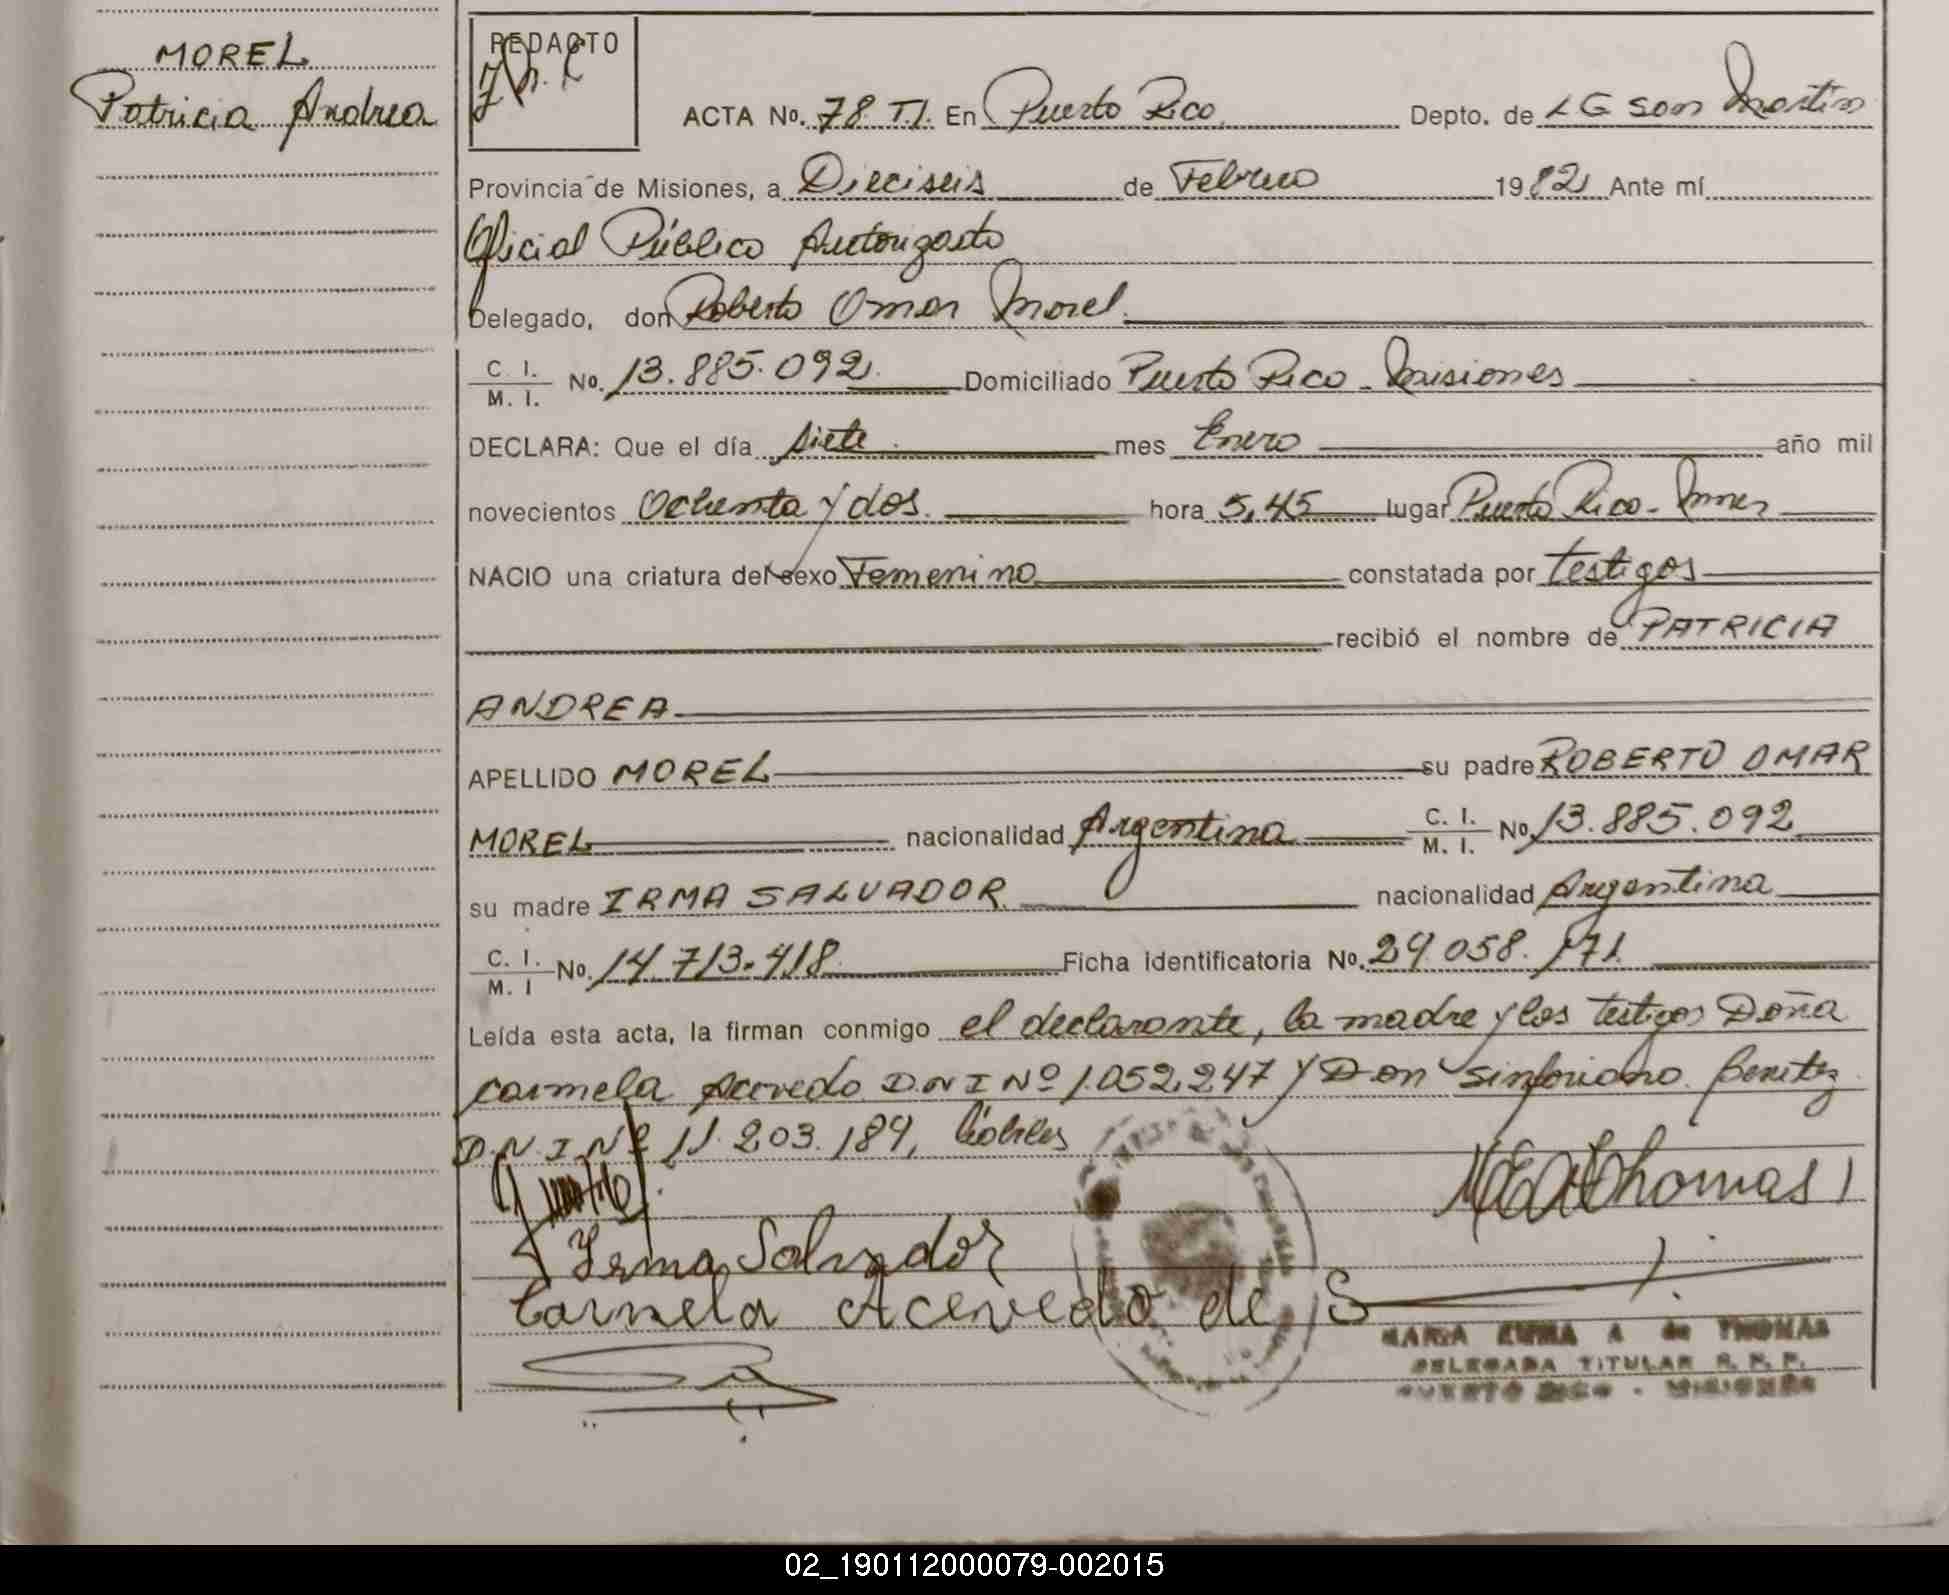 MOREL
Patricia Andrea
REDACTO
ACTA No. 78 T.I. En Puerto Rico Depto. de LG San Martin
Provincia de Misiones, a Dieciseis de Febrero 1982 Ante mí
Oficial Público Autorizado
Delegado, don Roberto Omar Morel
C. I. / M. I. No. 13.885.092 Domiciliado Puerto Rico - Misiones
DECLARA: Que el día siete mes Enero año mil
novecientos Ochenta y dos hora 5,45 lugar Puerto Rico - Mnes
NACIO una criatura del sexo Femenino constatada por testigos
recibió el nombre de PATRICIA
ANDREA
APELLIDO MOREL su padre ROBERTO OMAR
MOREL nacionalidad Argentina C. I. / M. I. No 13.885.092
su madre IRMA SALVADOR nacionalidad Argentina
C. I. / M. I No. 14.713.418 Ficha identificatoria No. 29.058.171
Leída esta acta, la firman conmigo el declarante, la madre y los testigos Doña
Carmela Acevedo D.N I Nº 1.052.247 y Don Sinforiano Benitez
D.N.I Nº 11.203.189, hábiles
MEAdeThomas
Irma Salvador
Carmela Acevedo de S
MARIA EMMA A de THOMAS
DELEGADA TITULAR R. P. P.
PUERTO RICO - MISIONES
02_190112000079-002015